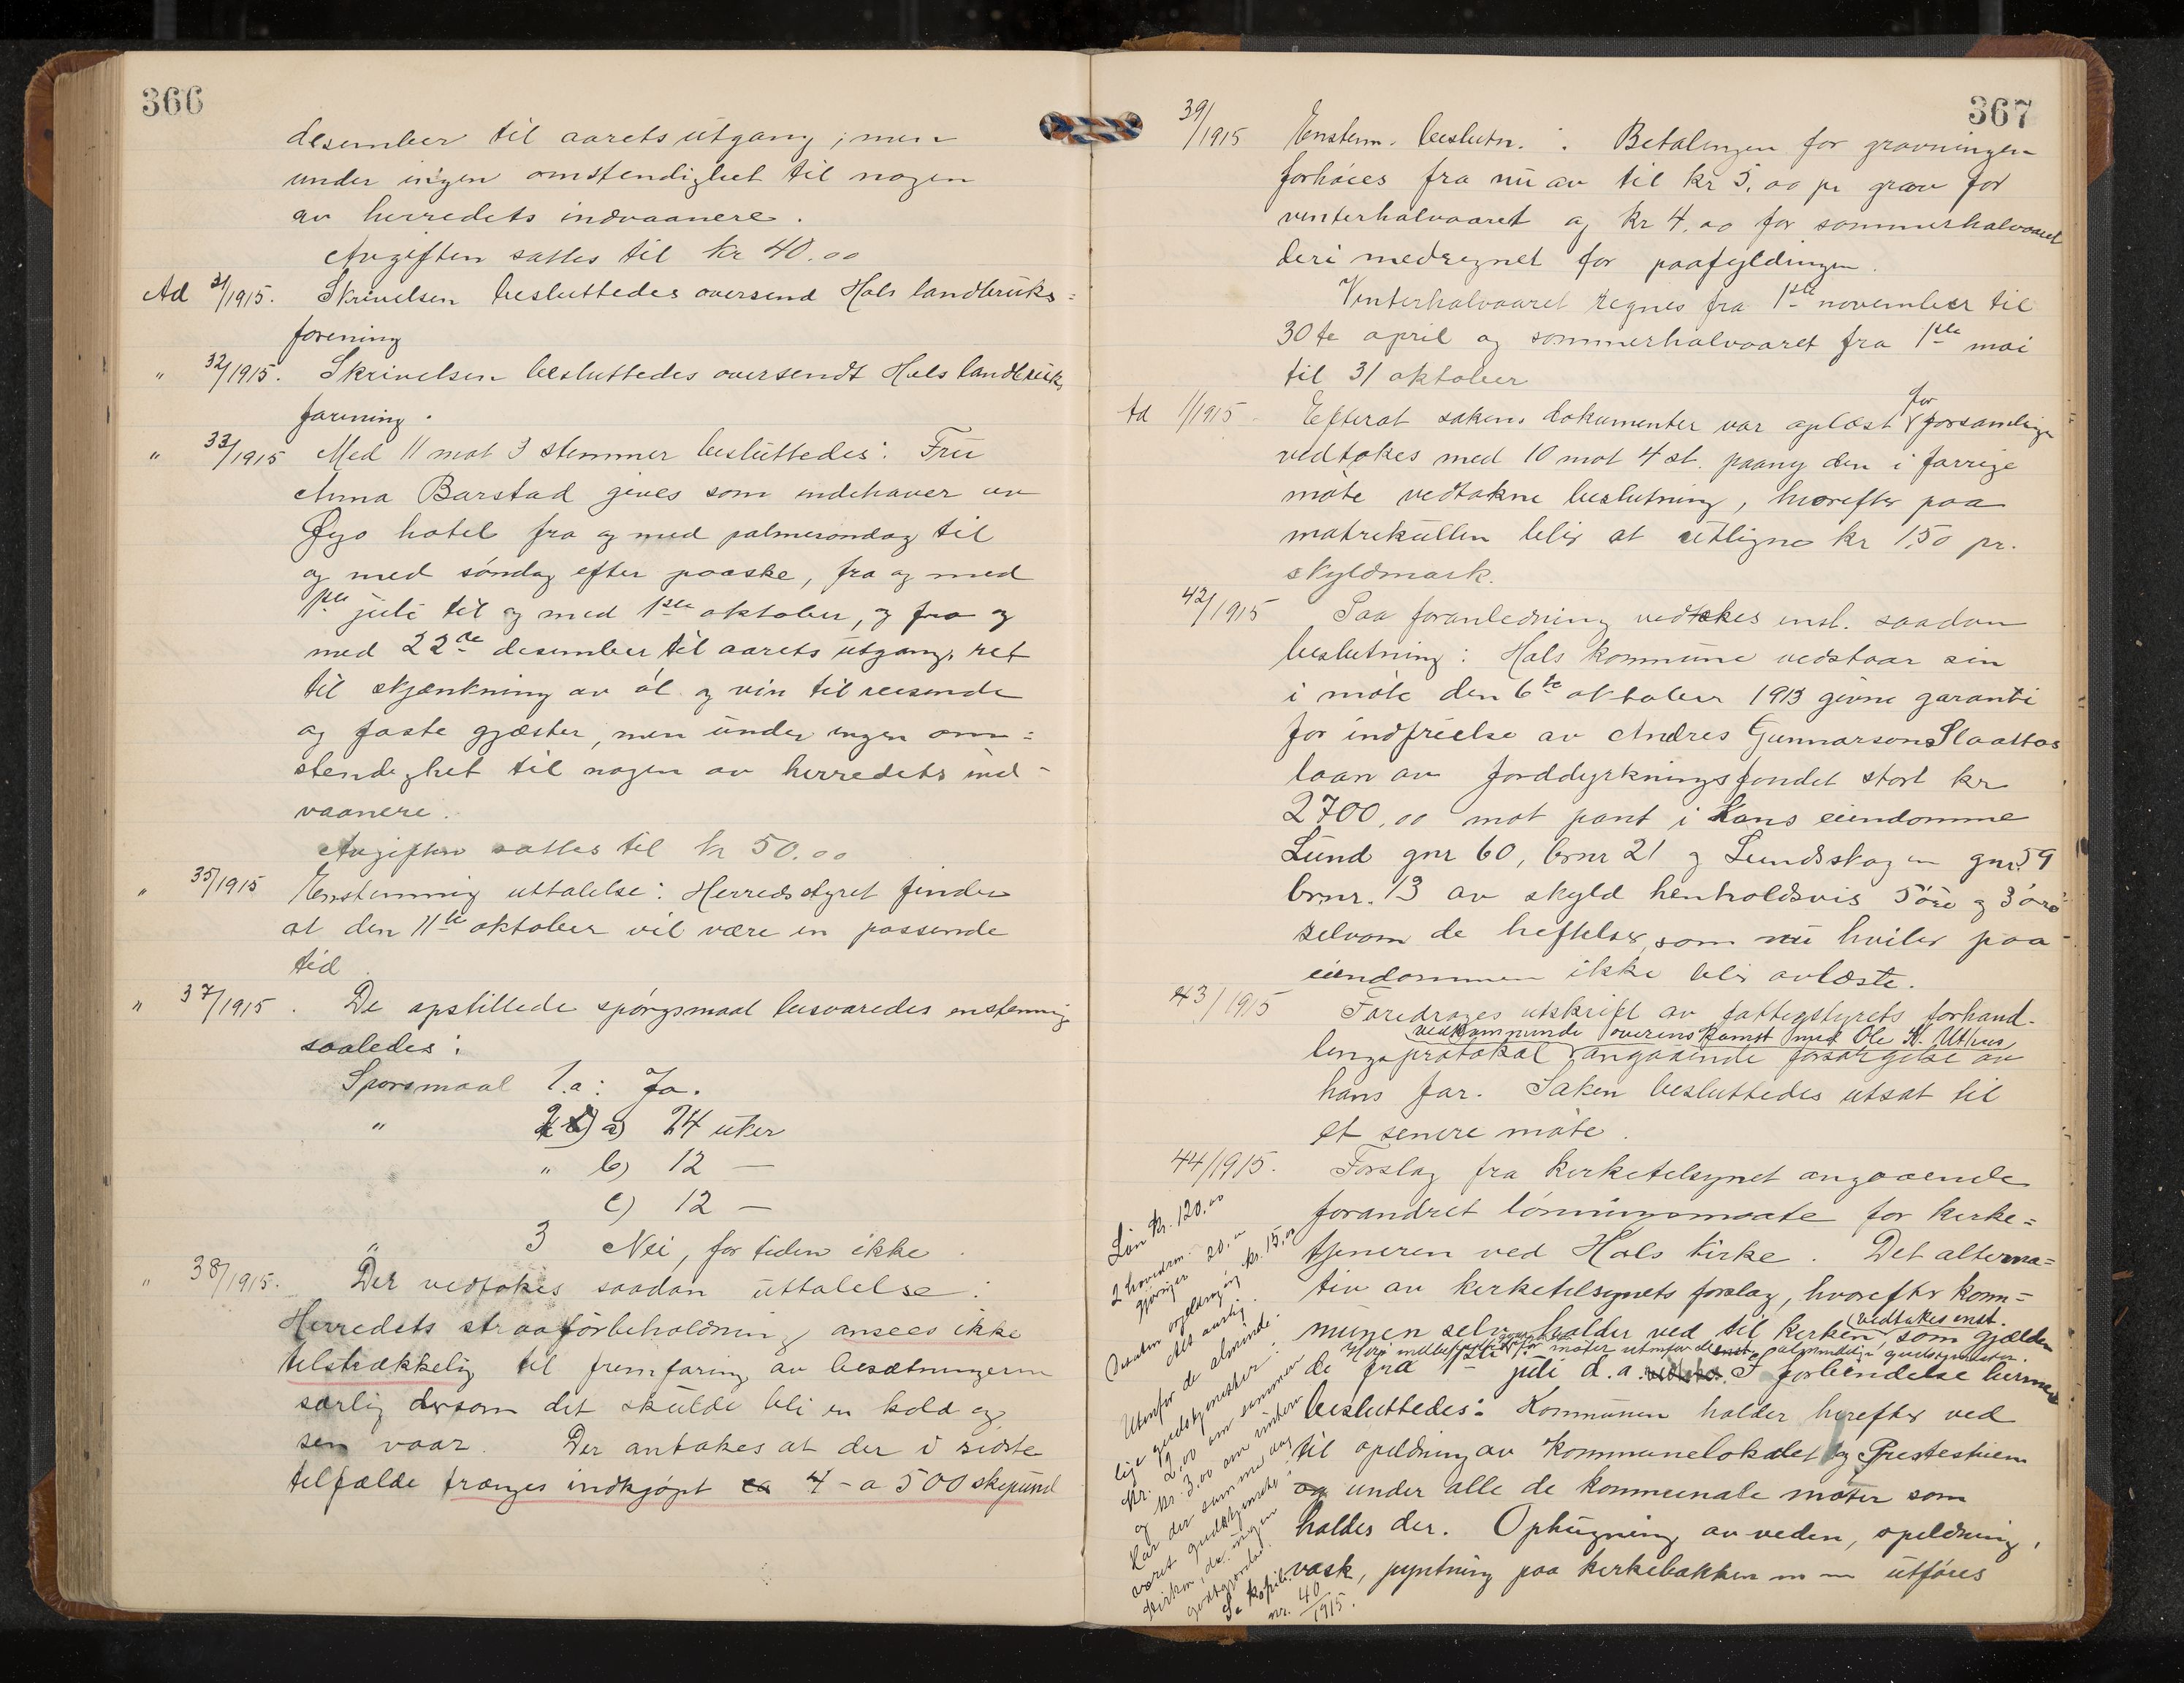 366
desember til aarets utgang; men
under ingen omstendighet til nogen
av herredets indvaanere.
Avgiften sattes til kr 40.00
Ad 31/1915. Skrivelsen besluttedes oversend Hals landbruks=
forening
" 32/1915. Skrivelsen besluttedes oversendt Hals landbruks
forening.
" 33/1915 Med 11 mot 3 stemmer besluttedes: Fru
Anna Barstad gives som indehaver av
Øyo hotel fra og med palmesondag til
og med søndag efter paaske, fra og med
1ste juli til og med 1ste oktober, og fra og
med 22de desember til aarets utgang, ret
til skjænkning av øl og vin til reisende
og faste gjæster, men under ingen om=
stendighet til nogen av herredets ind-
vaanere.
Avgiften sattes til kr 50.00
" 35/1915 Enstemmig uttalelse: Herredsstyret finder
at den 11te oktober vil være en passende
tid.
" 37/1915. De opstillede spørgsmaal besvaredes enstemmig
saaledes:
Sporsmaal 1.a: Ja.
" 2 a) 24 uker
" b) 12 —
c) 12 —
" 3 Nei, for tiden ikke.
" 38/1915. Der vedtokes saadan uttalelse:
Herredets straaforbeholdning ansees ikke
tilstrækkelig til fremforing av besætningerne
særlig dersom det skulde bli en kold og
sen vaar. Der antakes at der i sidste
tilfælde trænges indkjøpt ca 4 - a 500 skepund
367
39/1915 Enstem. beslutn.: Betalingen for gravningen
forhøies fra nu av til kr 5,00 pr grav for
vinterhalvaaret og kr 4.00 for sommerhalvaaret
deri medregnet for paafyldingen.
Vinterhalvaaret regnes fra 1ste november til
30te april og sommerhalvaaret fra 1ste mai
til 31 oktober
Ad 1/1915 - Efterat sakens dokumenter var oplæst for forsamlingen
vedtokes med 10 mot 4 st. paany den i forrige
møte vedtakne beslutning, hvorefter paa
matrikullen blir at utligne kr 1,50 pr.
skyldmark.
42/1915 Paa foranledning vedtokes enst. saadan
beslutning: Hals kommune vedstaar sin
i møte den 6te oktober 1913 givne garanti
for indfrielse av Andres Gunnarson Slaattos
laan av jorddyrkningsfondet stort kr
2700,00 mot pant i hans eiendomme
Lund gnr 60, brnr 21 og Lundsskogen gnr. 59
brnr. 13 av skyld henholdsvis 5 øre og 3 øre
selvom de heftelser, som nu hviler paa
eiendommen ikke blir avlæste.
43/1915 Foredroges utskrift av fattigstyrets forhand-
vedkommende overenskomst med Ole K. Uthus
lingsprotokol angaaende forsørgelse av
hans far. Saken besluttedes utsat til
et senere møte.
44/1915. Forslag fra kirketilsynet angaaende
forandret lønningsmaate for kirke=
tjeneren ved Hals kirke. Det alterna=
tiv av kirketilsynets forslag, hvorefter kom=
munen selv holder ved til kirken vedtokes enst. som gjælden
de fra 1ste juli d. a. I forbindelse hermed
besluttedes: Kommunen holder herefter ved
til opeldning av kommunelokalet og Prestestuen
og under alle de kommunale møter som
holdes der. Ophugning av veden, opeldning,
vask, pyntning paa kirkebakken m m utføres
Løn kr. 120,00
2 hovedren-
gjøringer 20,00
Desuten opeldning kr. 15,00
Alt aarlig.
Utenfor de alminde-
lige gudstjenester:
Kr. 2.00 om sommeren
og kr. 3.00 om vinteren
har der samme dag
været gudstjeneste i
kirken, da ingen
godtgjørelse.
Se kopib.
nr. 40/1915.